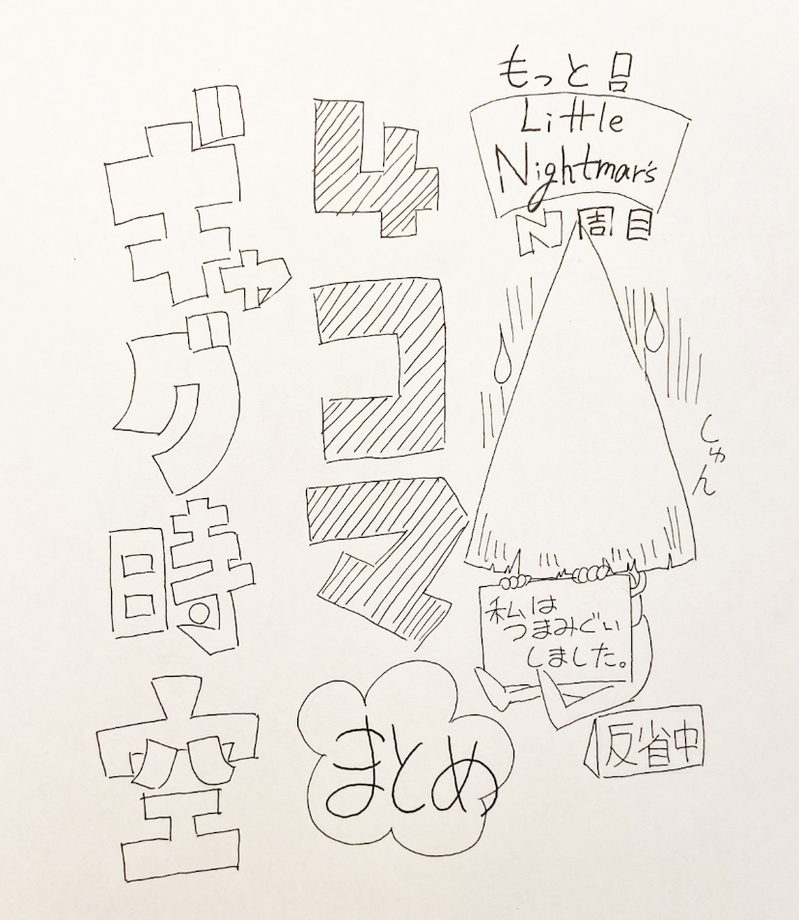 もっと!
Little
Nightmar's
N周目
しゅん
私は
つまみぐい
しました。
反省中
4コマ
まとめ
ギャグ時空